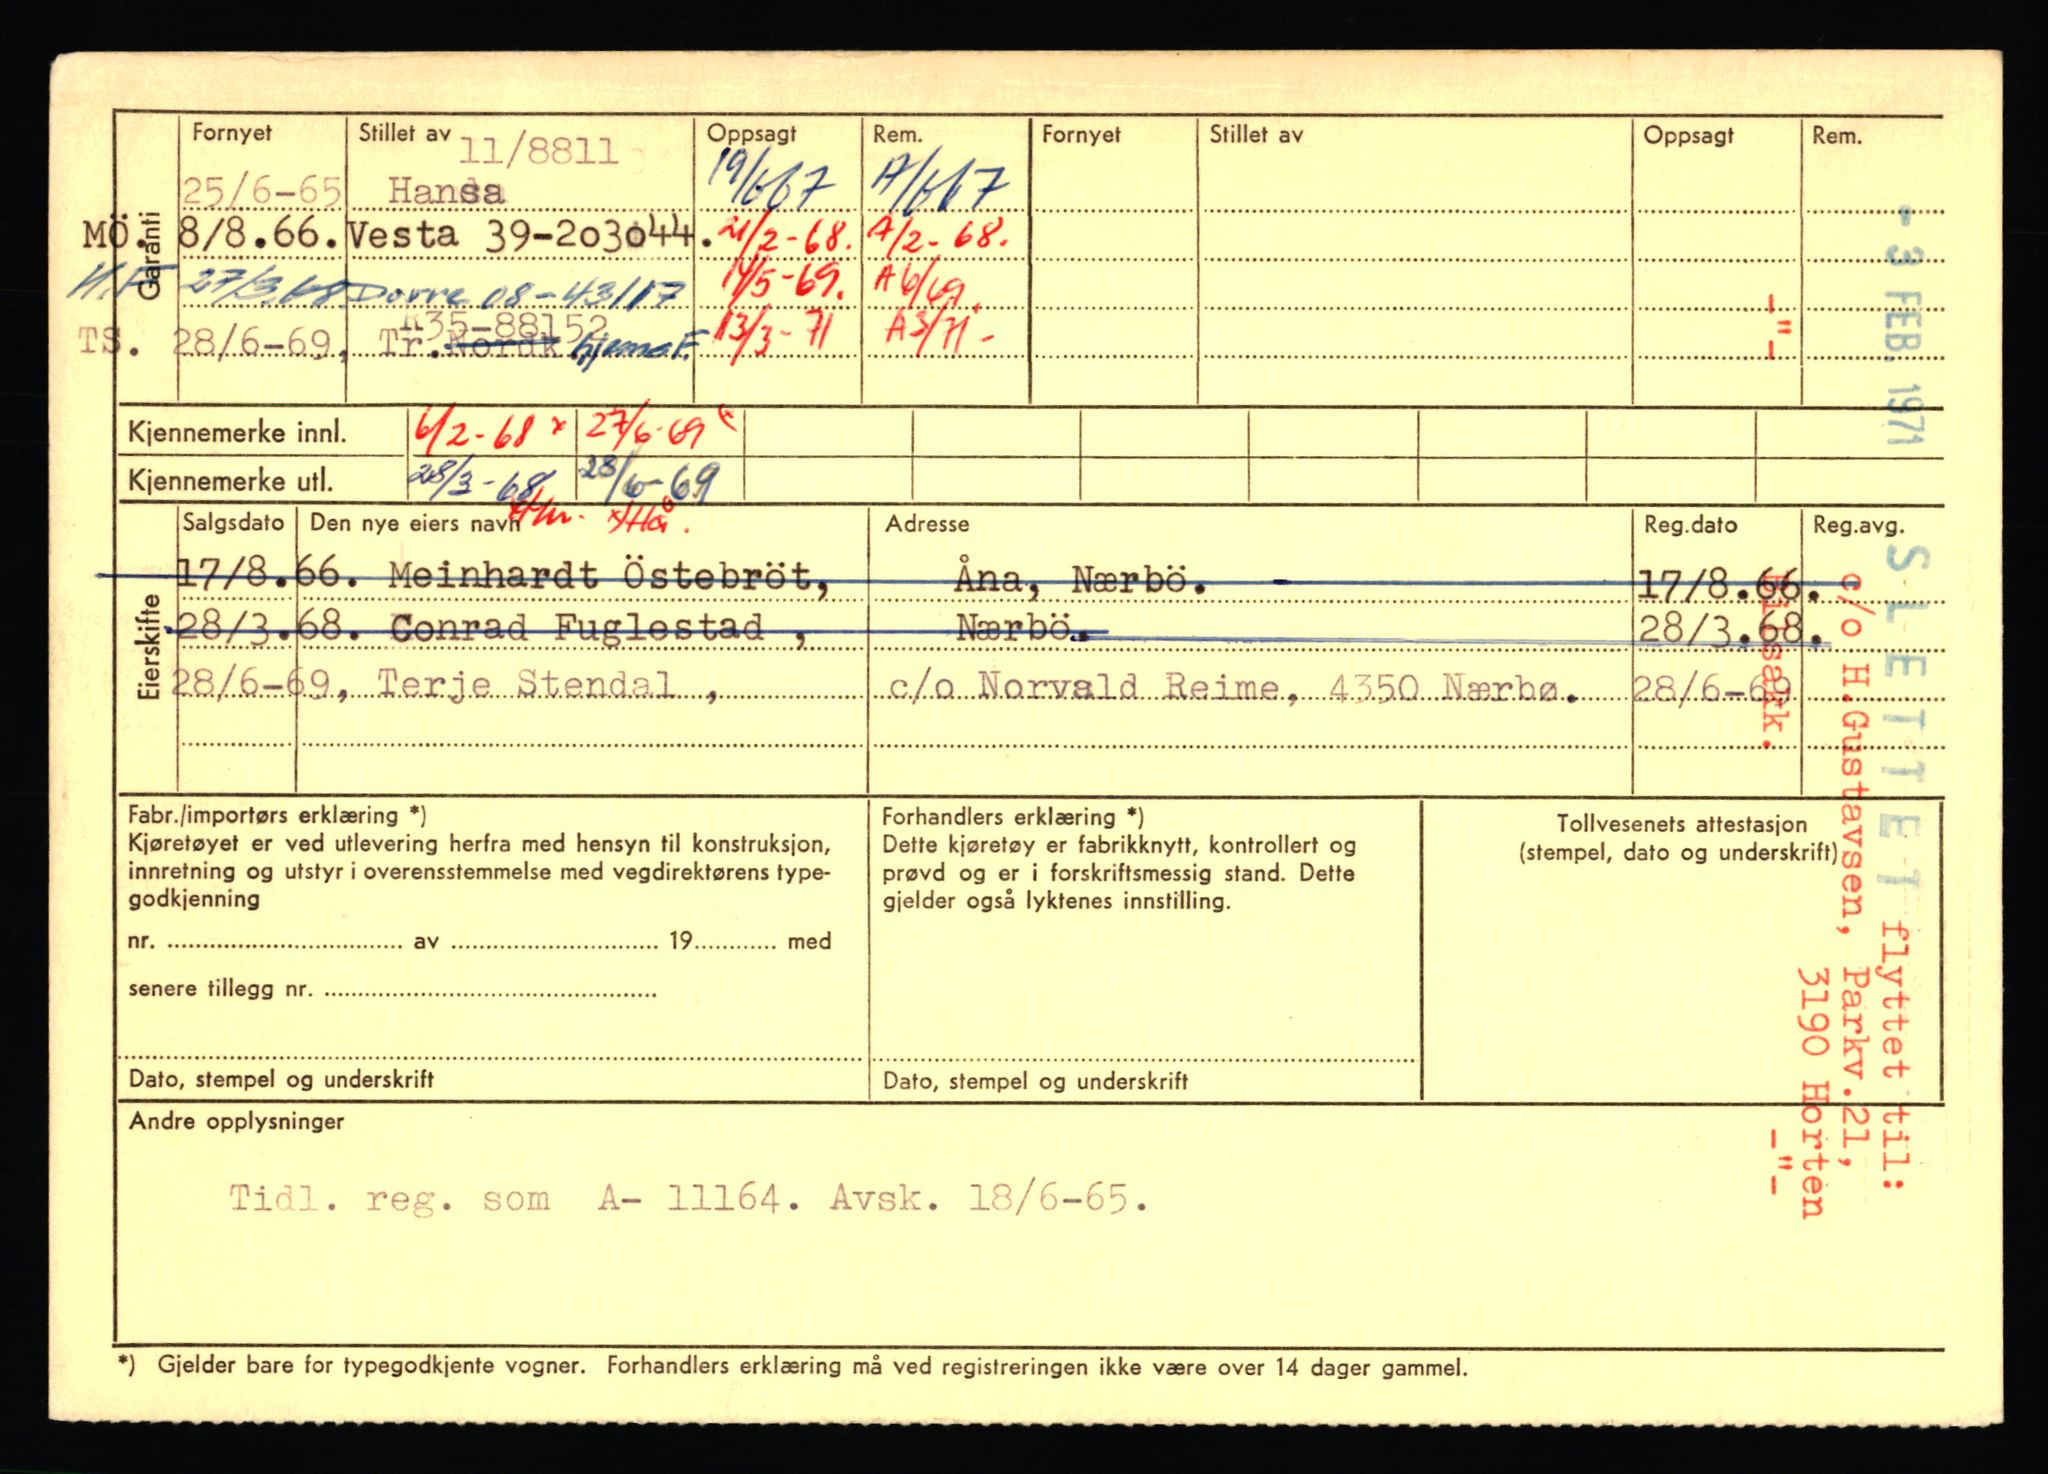 Garanti
Fornyet Stillet av Oppsagt Rem. Fornyet Stillet av Oppsagt Rem.
11/8811
25/6-65 Hansa 19/6 67 A/6 67
MÖ. 8/8.66. Vesta 39-203044. 21/2-68. A/2-68.
H.F 27/3.68 Dovre 08-43117 14/5-69. A6/69.
R35-88152
TS. 28/6-69, Tr. Nordk Hjemo F. 13/3-71 A3/71-
Kjennemerke innl. 6/2-68 x 27/6-69
Kjennemerke utl. 28/3-68 28/6-69
Eierskifte
Salgsdato Den nye eiers navn Adresse Reg.dato Reg.avg.
17/8.66. Meinhardt Östebröt, Åna, Nærbö. 17/8.66.
28/3.68. Conrad Fuglestad , Nærbö. 28/3.68.
28/6-69, Terje Stendal , c/o Norvald Reime, 4350 Nærbø. 28/6-69
Fabr./importørs erklæring *)
Kjøretøyet er ved utlevering herfra med hensyn til konstruksjon,
innretning og utstyr i overensstemmelse med vegdirektørens type-
godkjenning
nr. av 19 med
senere tillegg nr.
Dato, stempel og underskrift
Forhandlers erklæring *)
Dette kjøretøy er fabrikknytt, kontrollert og
prøvd og er i forskriftsmessig stand. Dette
gjelder også lyktenes innstilling.
Dato, stempel og underskrift
Tollvesenets attestasjon
(stempel, dato og underskrift)
Andre opplysninger
Tidl. reg. som A- 11164. Avsk. 18/6-65.
*) Gjelder bare for typegodkjente vogner. Forhandlers erklæring må ved registreringen ikke være over 14 dager gammel.
- 3 FEB. 1971
SLETTET flyttet til:
c/o H.Gustavsen, Parkv.21,
3190 Horten
-"- -"-